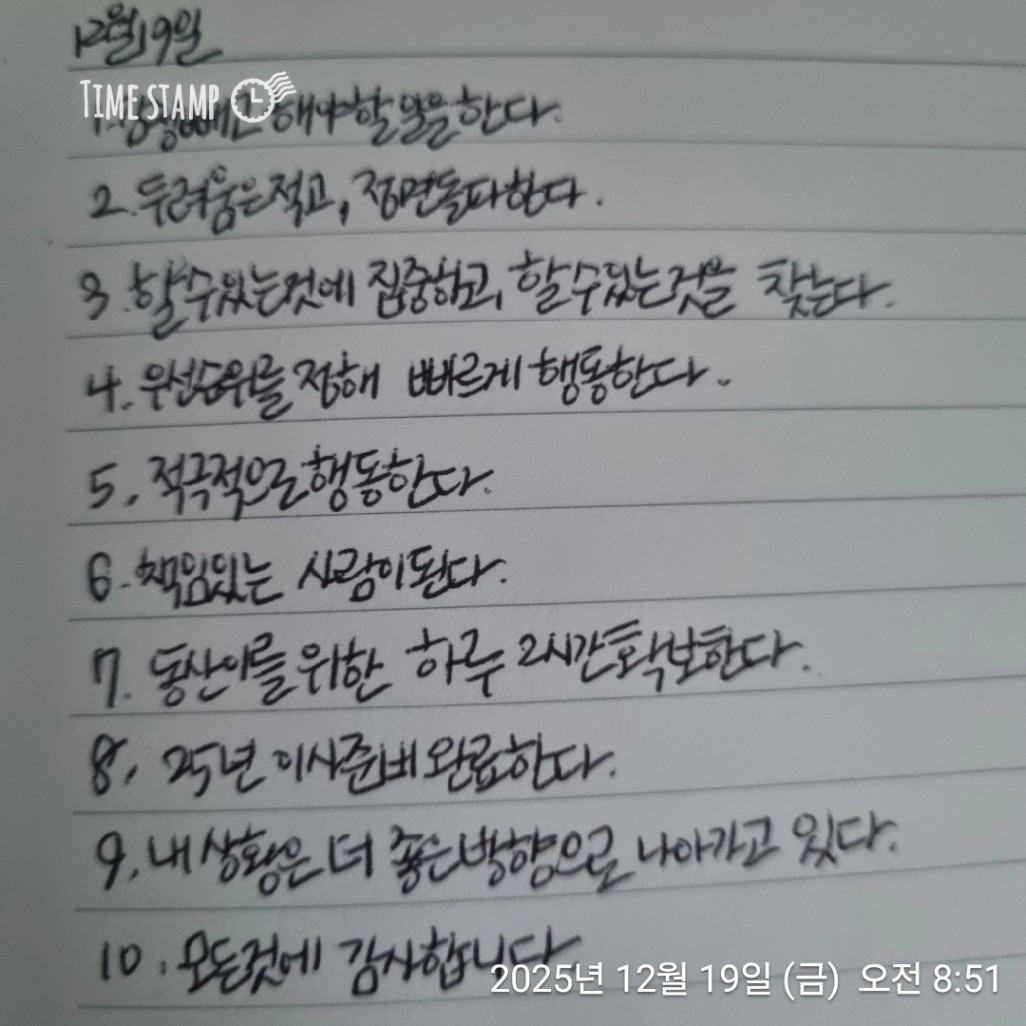 12월19일
TIME STAMP
1. 감정빼고 해야할일을한다.
2. 두려움은적고, 정면돌파한다.
3. 할수있는것에 집중하고, 할수있는것을 찾는다.
4. 우선순위를 정해 빠르게 행동한다.
5. 적극적으로행동한다.
6. 책임있는 사람이된다.
7. 동산이를 위한 하루 2시간확보한다.
8. 25년 이사준비 완료한다.
9. 내 상황은 더 좋은방향으로 나아가고 있다.
10. 모든것에 감사합니다.
2025년 12월 19일 (금) 오전 8:51